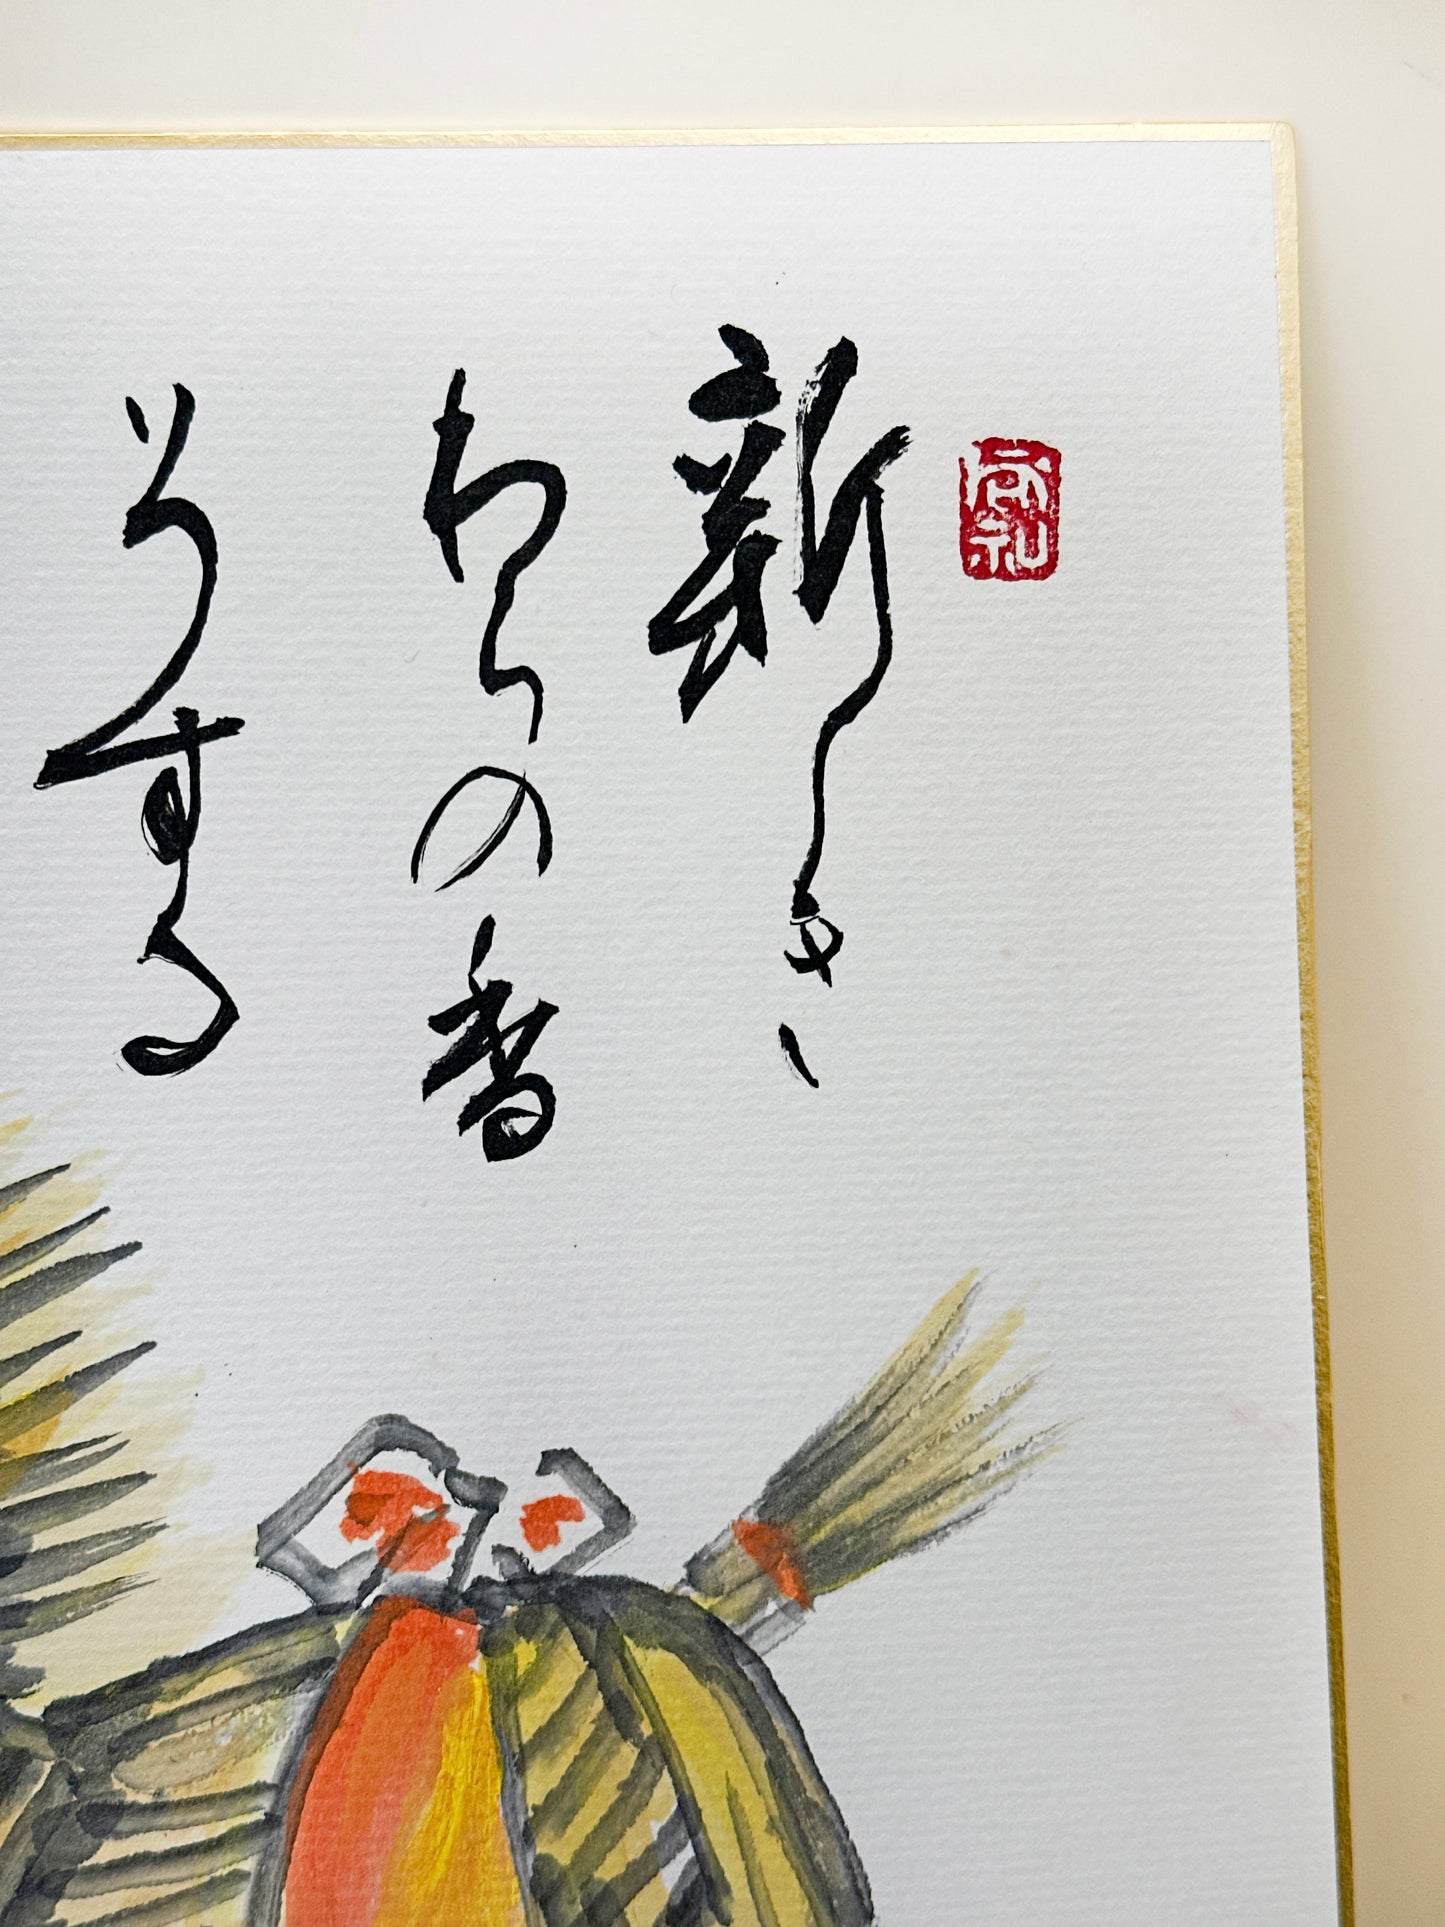 新しき
わらの香
のする